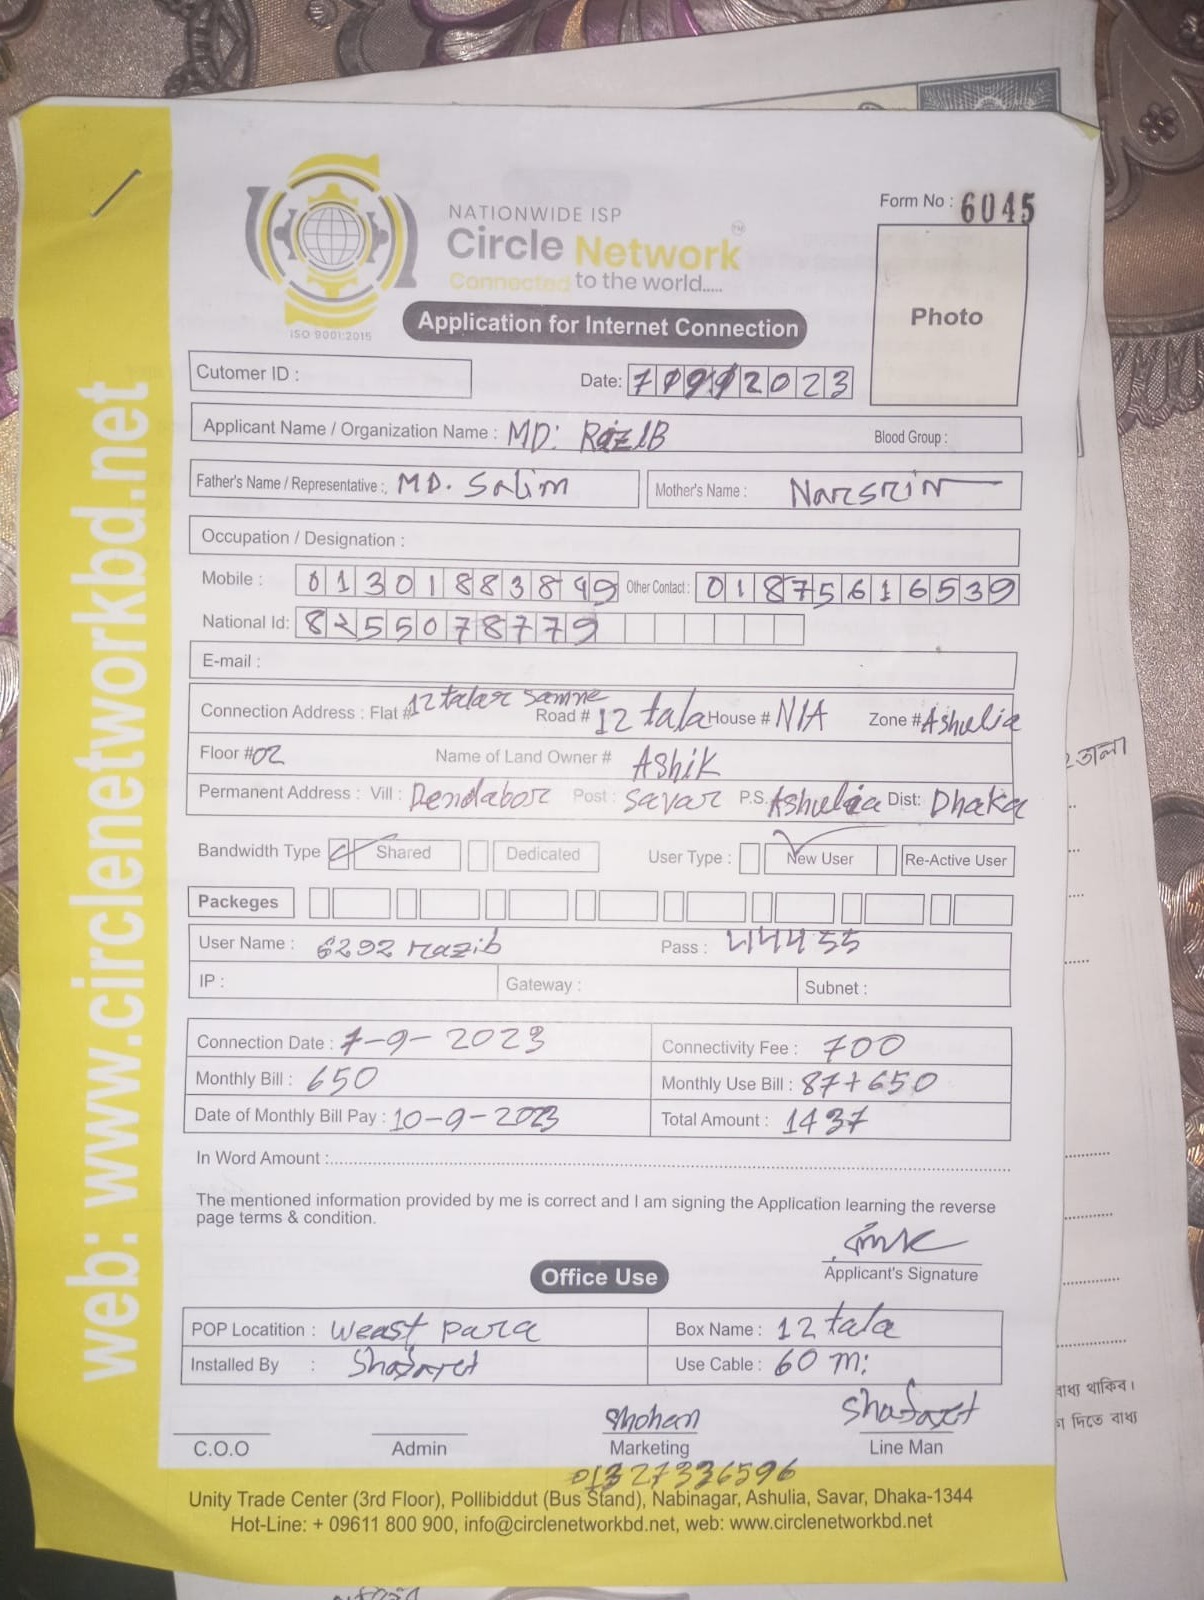 NATIONWIDE ISP
Circle Network™
Connected to the world.....
ISO 9001:2015
Form No : 6045
Photo
Application for Internet Connection
Cutomer ID :
Date: 2023
Applicant Name / Organization Name : MD: RazIB Blood Group :
Father's Name / Representative : MD. Salim Mother's Name : Narsrin
Occupation / Designation :
Mobile : 01301883899 Other Contact : 01875616539
National Id: 8255078779
E-mail :
Connection Address : Flat # 12 talar Samne Road # 12 tala House # N/A Zone # Ashulia
Floor # 02 Name of Land Owner # Ashik
Permanent Address : Vill : Dendabor Post : Savar P.S. Ashulia Dist: Dhaka
Bandwidth Type Shared Dedicated User Type : New User Re-Active User
Packeges
User Name : 6292 razib Pass : 444455
IP : Gateway : Subnet :
Connection Date : 7-9-2023 Connectivity Fee : 700
Monthly Bill : 650 Monthly Use Bill : 87+650
Date of Monthly Bill Pay : 10-9-2023 Total Amount : 1437
In Word Amount :
The mentioned information provided by me is correct and I am signing the Application learning the reverse
page terms & condition.
Applicant's Signature
Office Use
POP Locatition : Weast para Box Name : 12 tala
Installed By : Shafayet Use Cable : 60 m:
Shohan Shafayet
C.O.O Admin Marketing Line Man
01327336596
Unity Trade Center (3rd Floor), Pollibiddut (Bus Stand), Nabinagar, Ashulia, Savar, Dhaka-1344
Hot-Line: + 09611 800 900, info@circlenetworkbd.net, web: www.circlenetworkbd.net
web: www.circlenetworkbd.net
বাধ্য থাকিব।
দিতে বাধ্য